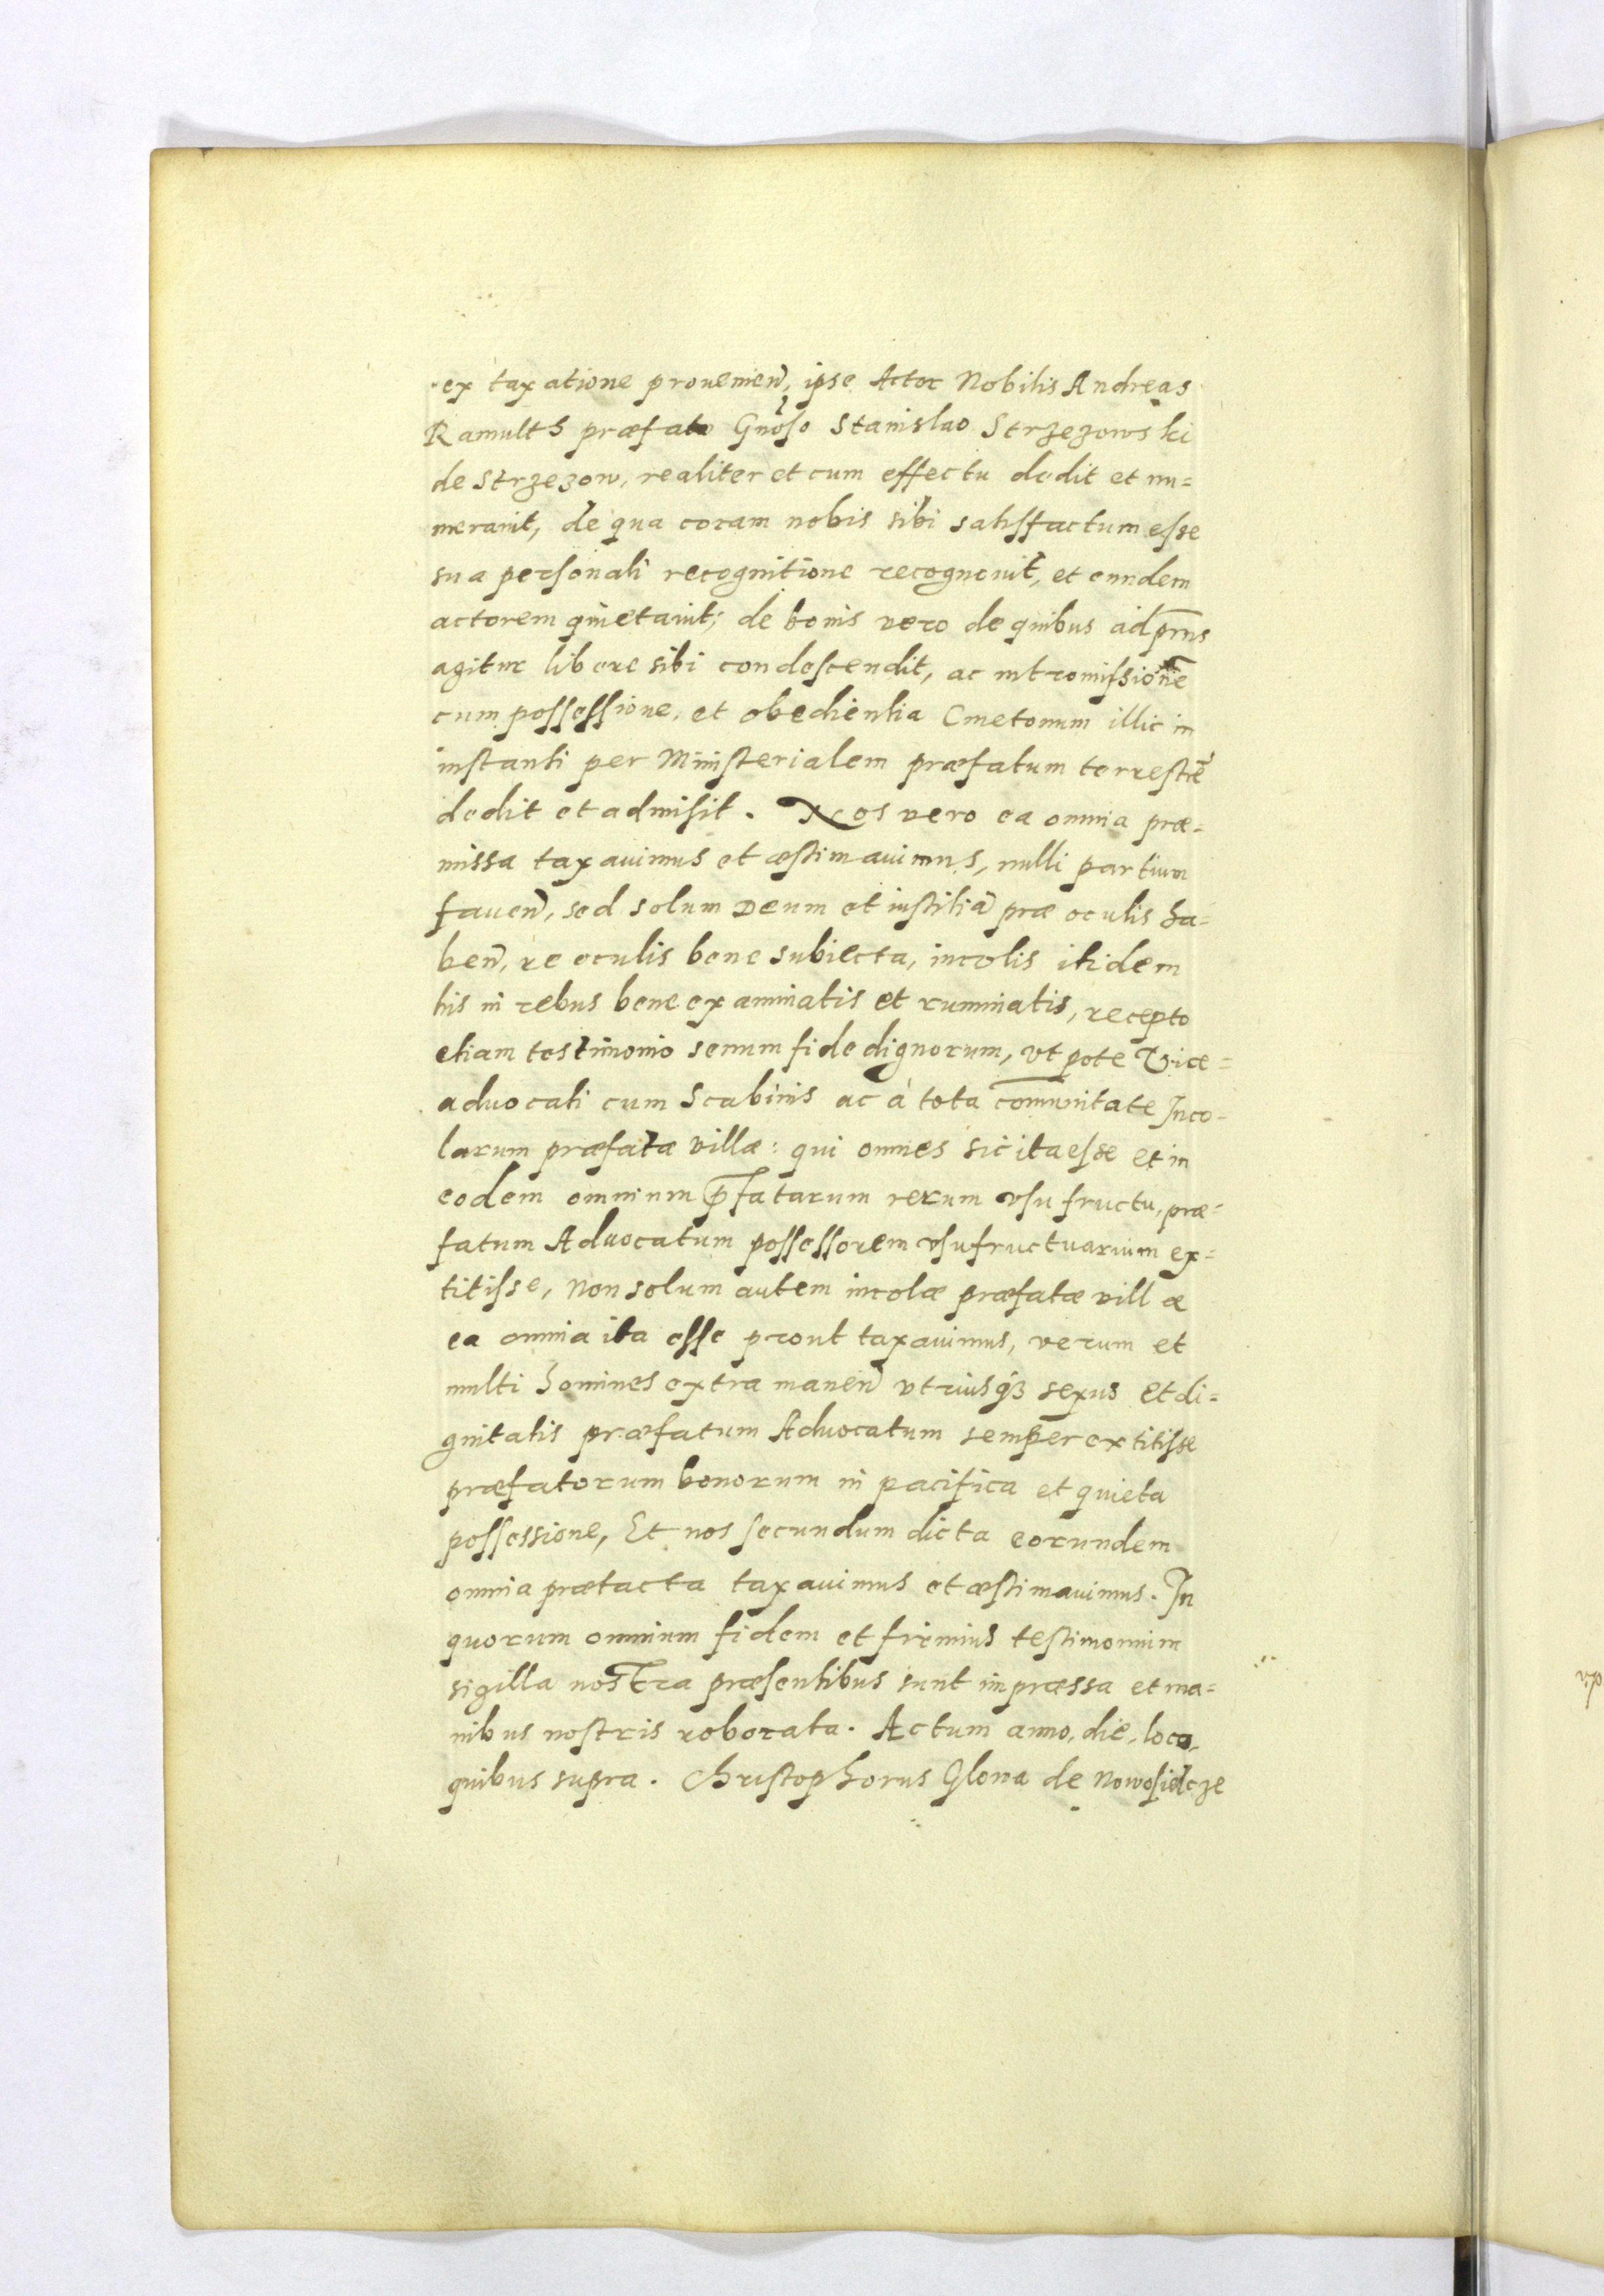 ex taxatione prouenien̄, ipse Actor Nobilis Andreas
Ramulth præfato Gnoso Stanislao Strzezowski
de Strzezow, realiter et cum effectu dedit et nu=
merauit, de qua coram nobis sibi satisfactum esse
sua personali recognitione recognouit, et eundem
actorem quietauit; de bonis vero de quibus ad prn̄s
agitur libere sibi condescendit, ac intromissionē
cum possessione, et obedientia Cmetonum illic in
instanti per Ministerialem præfatum terrestrē
dedit et admisit. Nos vero ea omnia præ=
missa taxauimus et æstimauimus, nulli partium
fauen̄, sed solum Deum et iustitiā præ oculis ha=
ben̄, re oculis bene subiecta, incolis itidem
his in rebus bene examinatis et ruminatis, recepto
etiam testimonio senum fide dignorum, vt pote Vice=
aduocati cum Scabinis ac à tota com̄unitate Inco=
larum præfatæ villæ: qui omnes sic ita esse et in
eodem omnium p̄fatarum rerum vsu fructu, præ=
fatum Aduocatum possessorem vsufructuarium ex=
titisse, Non solum autem incolæ præfatæ villæ
ea omnia ita esse prout taxauimus, verum et
multi homines extra manen̄ vtriusqȝ sexus et di=
gnitatis præfatum Aduocatum semper extitisse
præfatorum bonorum in pacifica et quieta
possessione, Et nos secundum dicta eorundem
omnia prætacta taxauimus et æstimauimus. In
quorum omnium fidem et firmius testimonium
sigilla nostra præsentibus sunt impræssa et ma=
nibus nostris roborata. Actum anno, die, loco,
quibus supra. Christophorus Glowa de Nowosielcze